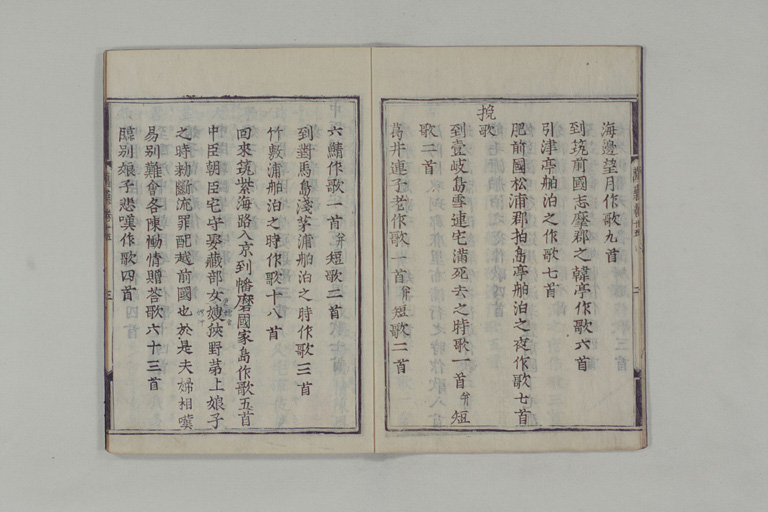 海邊望月作歌九首
到筑前國志麻郡之韓亭作歌六首
引津亭舶泊之作歌七首
肥前國松浦郡狛島亭舶泊之夜作歌七首
挽歌
到壹岐島雪連宅滿死去之時歌一首并短
歌二首
葛井連子老作歌一首并短歌二首
六鯖作歌一首并短歌二首
到對馬島淺茅浦舶泊之時作歌三首
竹敷浦舶泊之時作歌十八首
回來筑紫海路入京到幡磨國家島作歌五首
中臣朝臣宅守娶藏部女嬬狹野茅上娘子
之時勅斷流罪配越前國也於是夫婦相嘆
易別難會各陳慟情贈答歌六十三首
臨別娘子悲嘆作歌四首
三